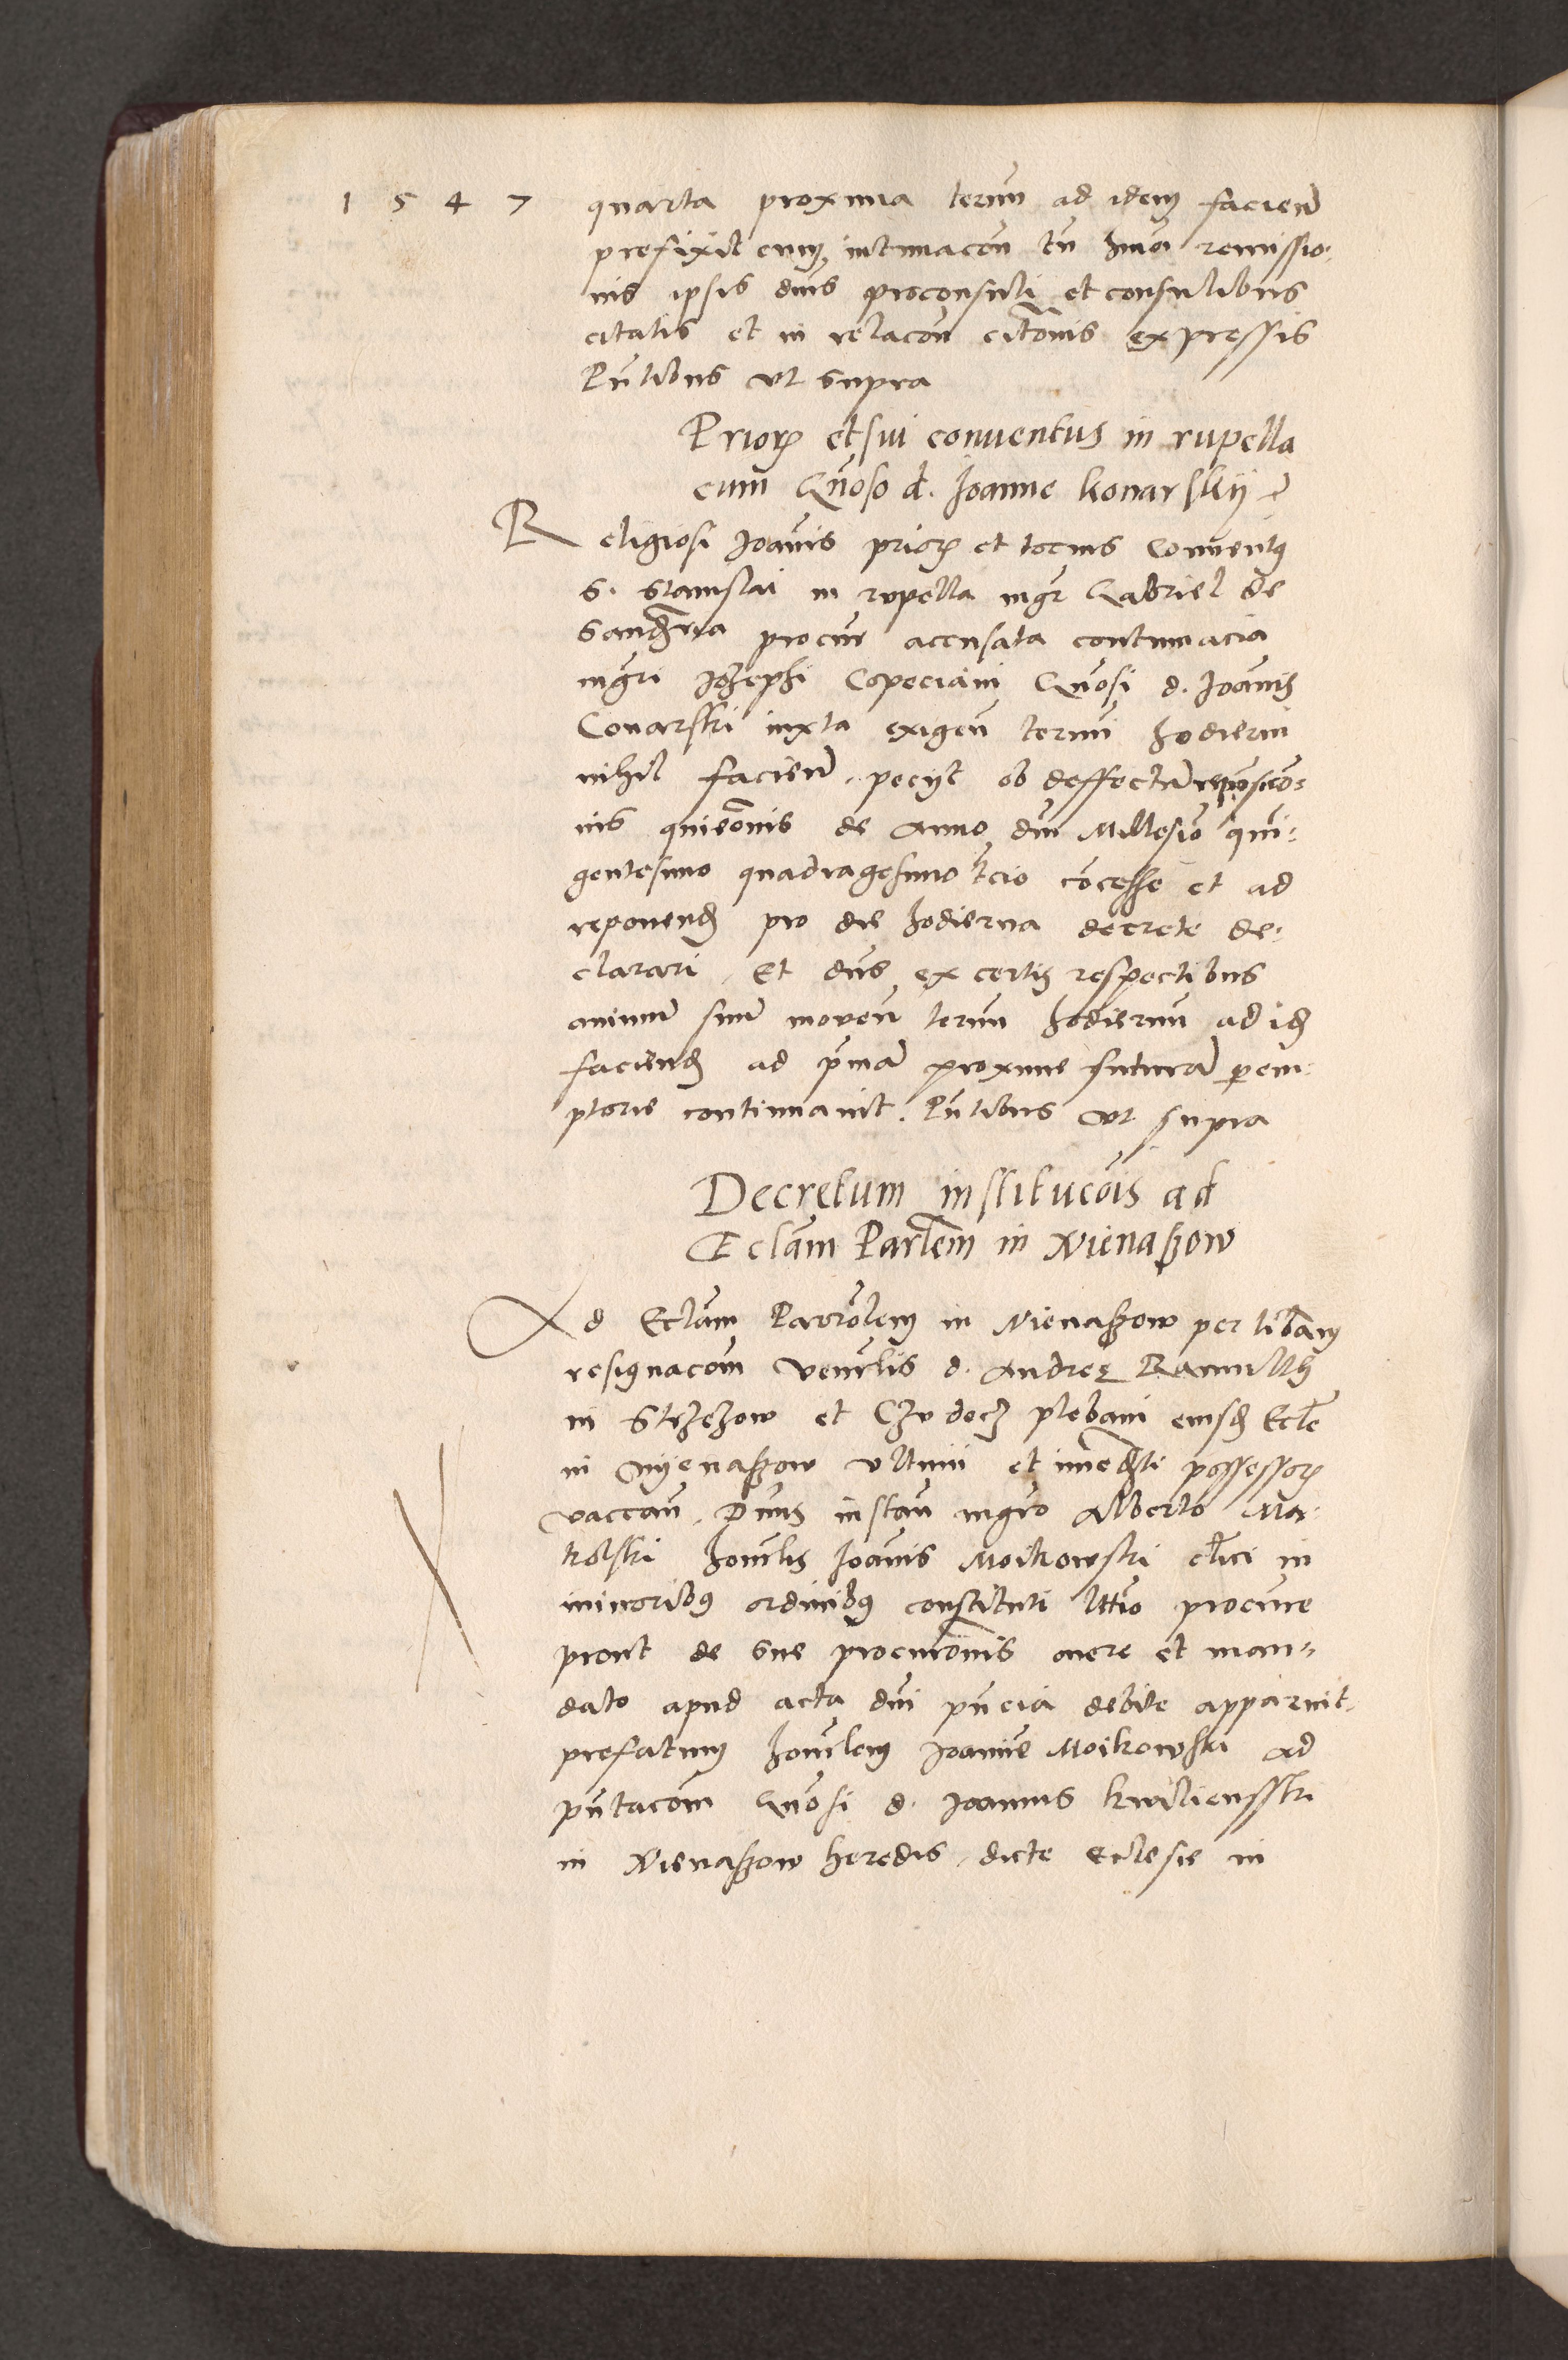 1 5 4 7 quarta proxima termin ad idem facien
prefixit cum intimacon tn hmoi remissio-
nis ipsis dnis proconsuli et consulibus
citatis et in relacon citonis expressis
Pntibus vt supra
Prioris et sui conuentus in rupella
cum Gnoso d. Joanne konarskij
Religiosi Joannis prioris et tocius Conuentus
S. Stanislai in rupella mgr Gabriel de
Sandomiria procur accusata contumacia
mgri Jozephi Copeciani Gnosi d. Joannis
Conarski iuxta exigen termini hodierni
nihil facien. peciit ob deffectum reposico-
nis quicionis de Anno dni Millesimo quin-
gentesimo quadragesimo tcio concesse et ad
reponend pro die hodierna decrete de-
clarari. Et dns ex certis respectibus
animum suum mouen termin hodiernum ad id
faciend ad primam proxime futuram perem-
ptorie continuauit. Pntibus vt supra
Decretum institucois ad
Ecclam Parlem in Nienaszow
Ad Ecclam Parrolem in Nienaszow per libam
resignacom venerlis d. Andree Ramulth
in Strzezow et Czudecz plebani eiusd Eccle
in Nyenaszow vltimi et immediati possessoris
vaccan. Dnus instan mgro Alberto Ma-
kolski honorlis Joannis Moikowski clici in
minoribus ordinibus constituti lttimo procure
prout de sue procuronis onere et man-
dato apud acta dni pntia debite apparuit
prefatum honorlem Joannem Moikowski ad
pntacom Gnosi d. Joannis kwilienski
in Nienaszow heredis, dicte Ecclesie in